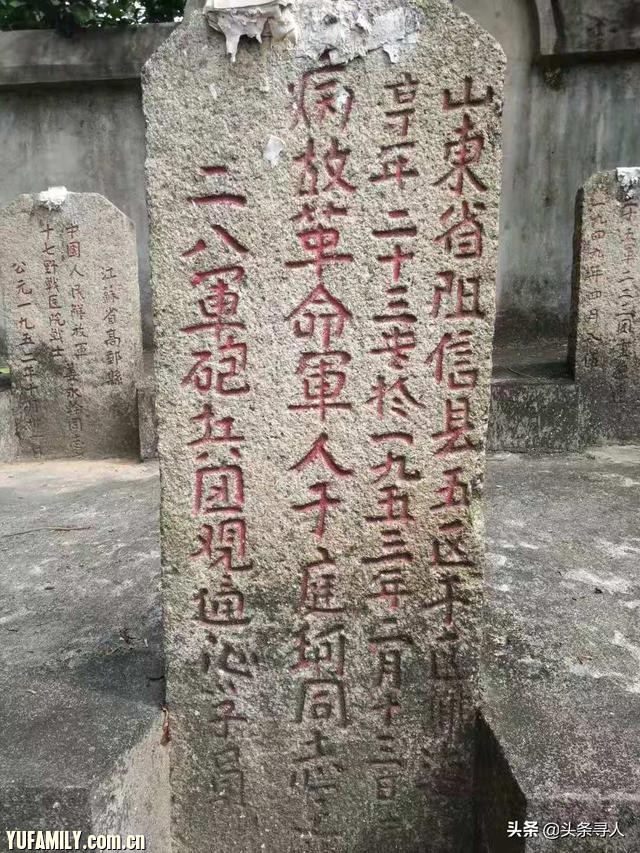 山東省阻信县五区于区佛
享年二十三岁於一九五三年二月十三日
病故革命軍人于庭珂同志
二八軍砲兵团观通学員
江蘇省高郵縣
中國人民解放軍 同志
十七野戰医院战士
公元一九五二年十
YUFAMILY.com.cn
头条 @头条寻人